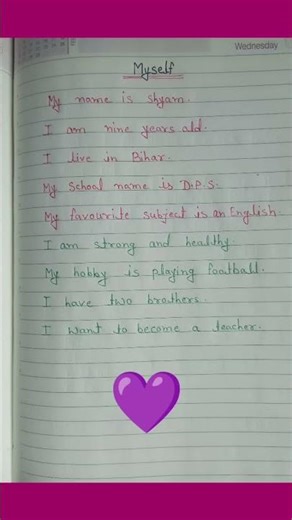 Wednesday
Myself
My name is Shyam.
I am nine years old.
I live in Bihar.
My School name is D.P.S.
My favourite subject is an English.
I am strong and healthy.
My hobby is playing football.
I have two brothers.
I want to become a teacher.